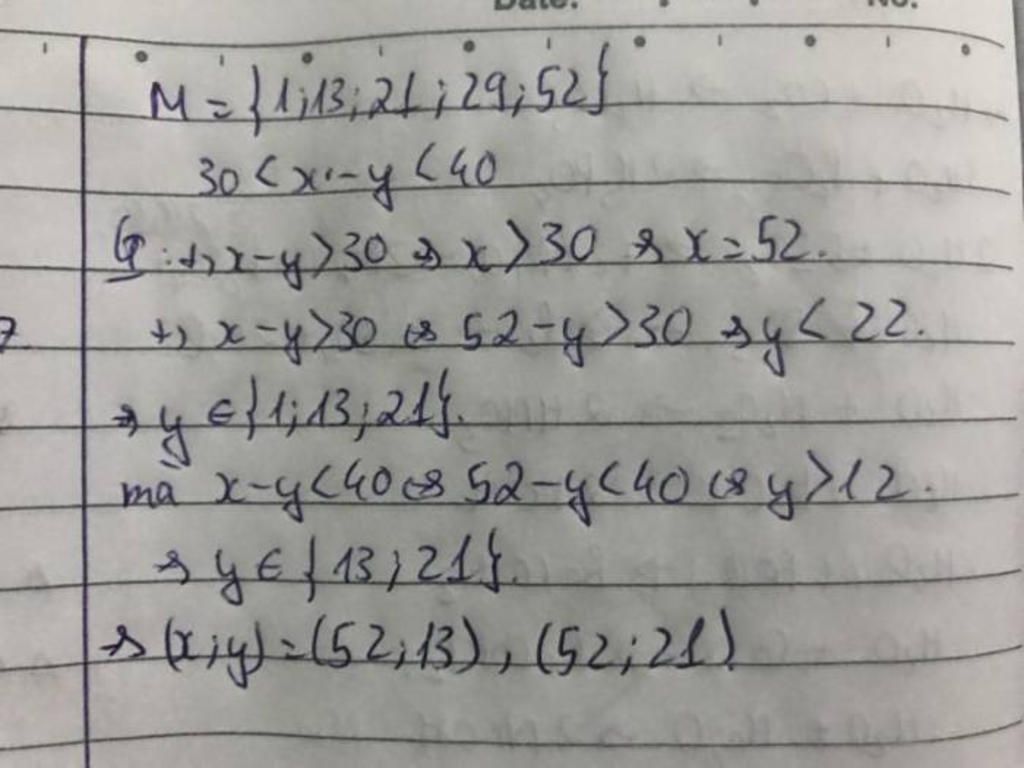 Date: No.
M = {1;13;21;29;52}
30 < x - y < 40
G: +, x - y > 30 => x > 30 => x = 52.
+, x - y > 30 <=> 52 - y > 30 => y < 22.
=> y ∈ {1;13;21}.
mà x - y < 40 <=> 52 - y < 40 <=> y > 12.
=> y ∈ {13;21}.
=> (x;y) = (52;13), (52;21)